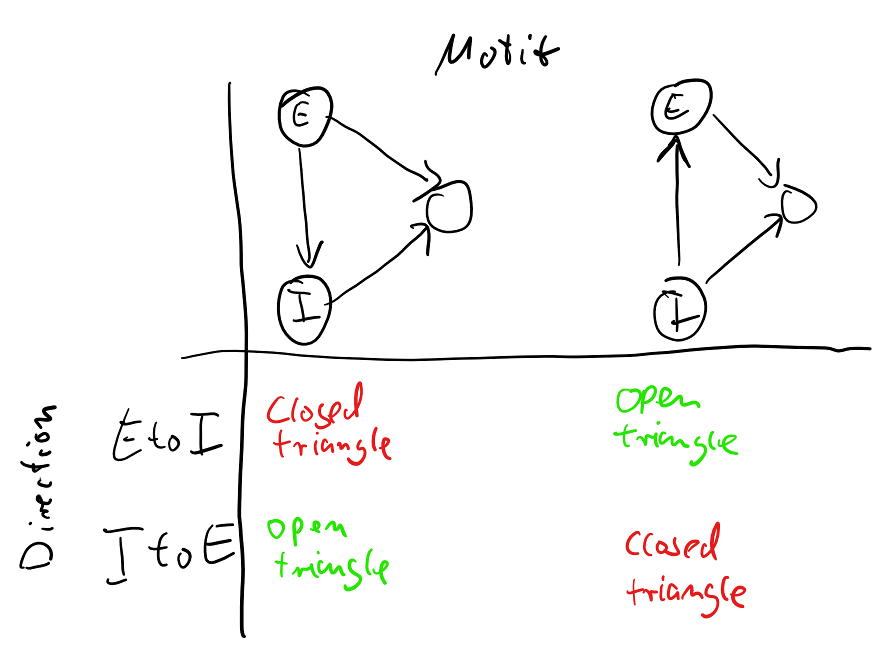 Motif
E
E
I
I
Direction
E to I
Closed
triangle
open
triangle
I to E
open
triangle
Closed
triangle